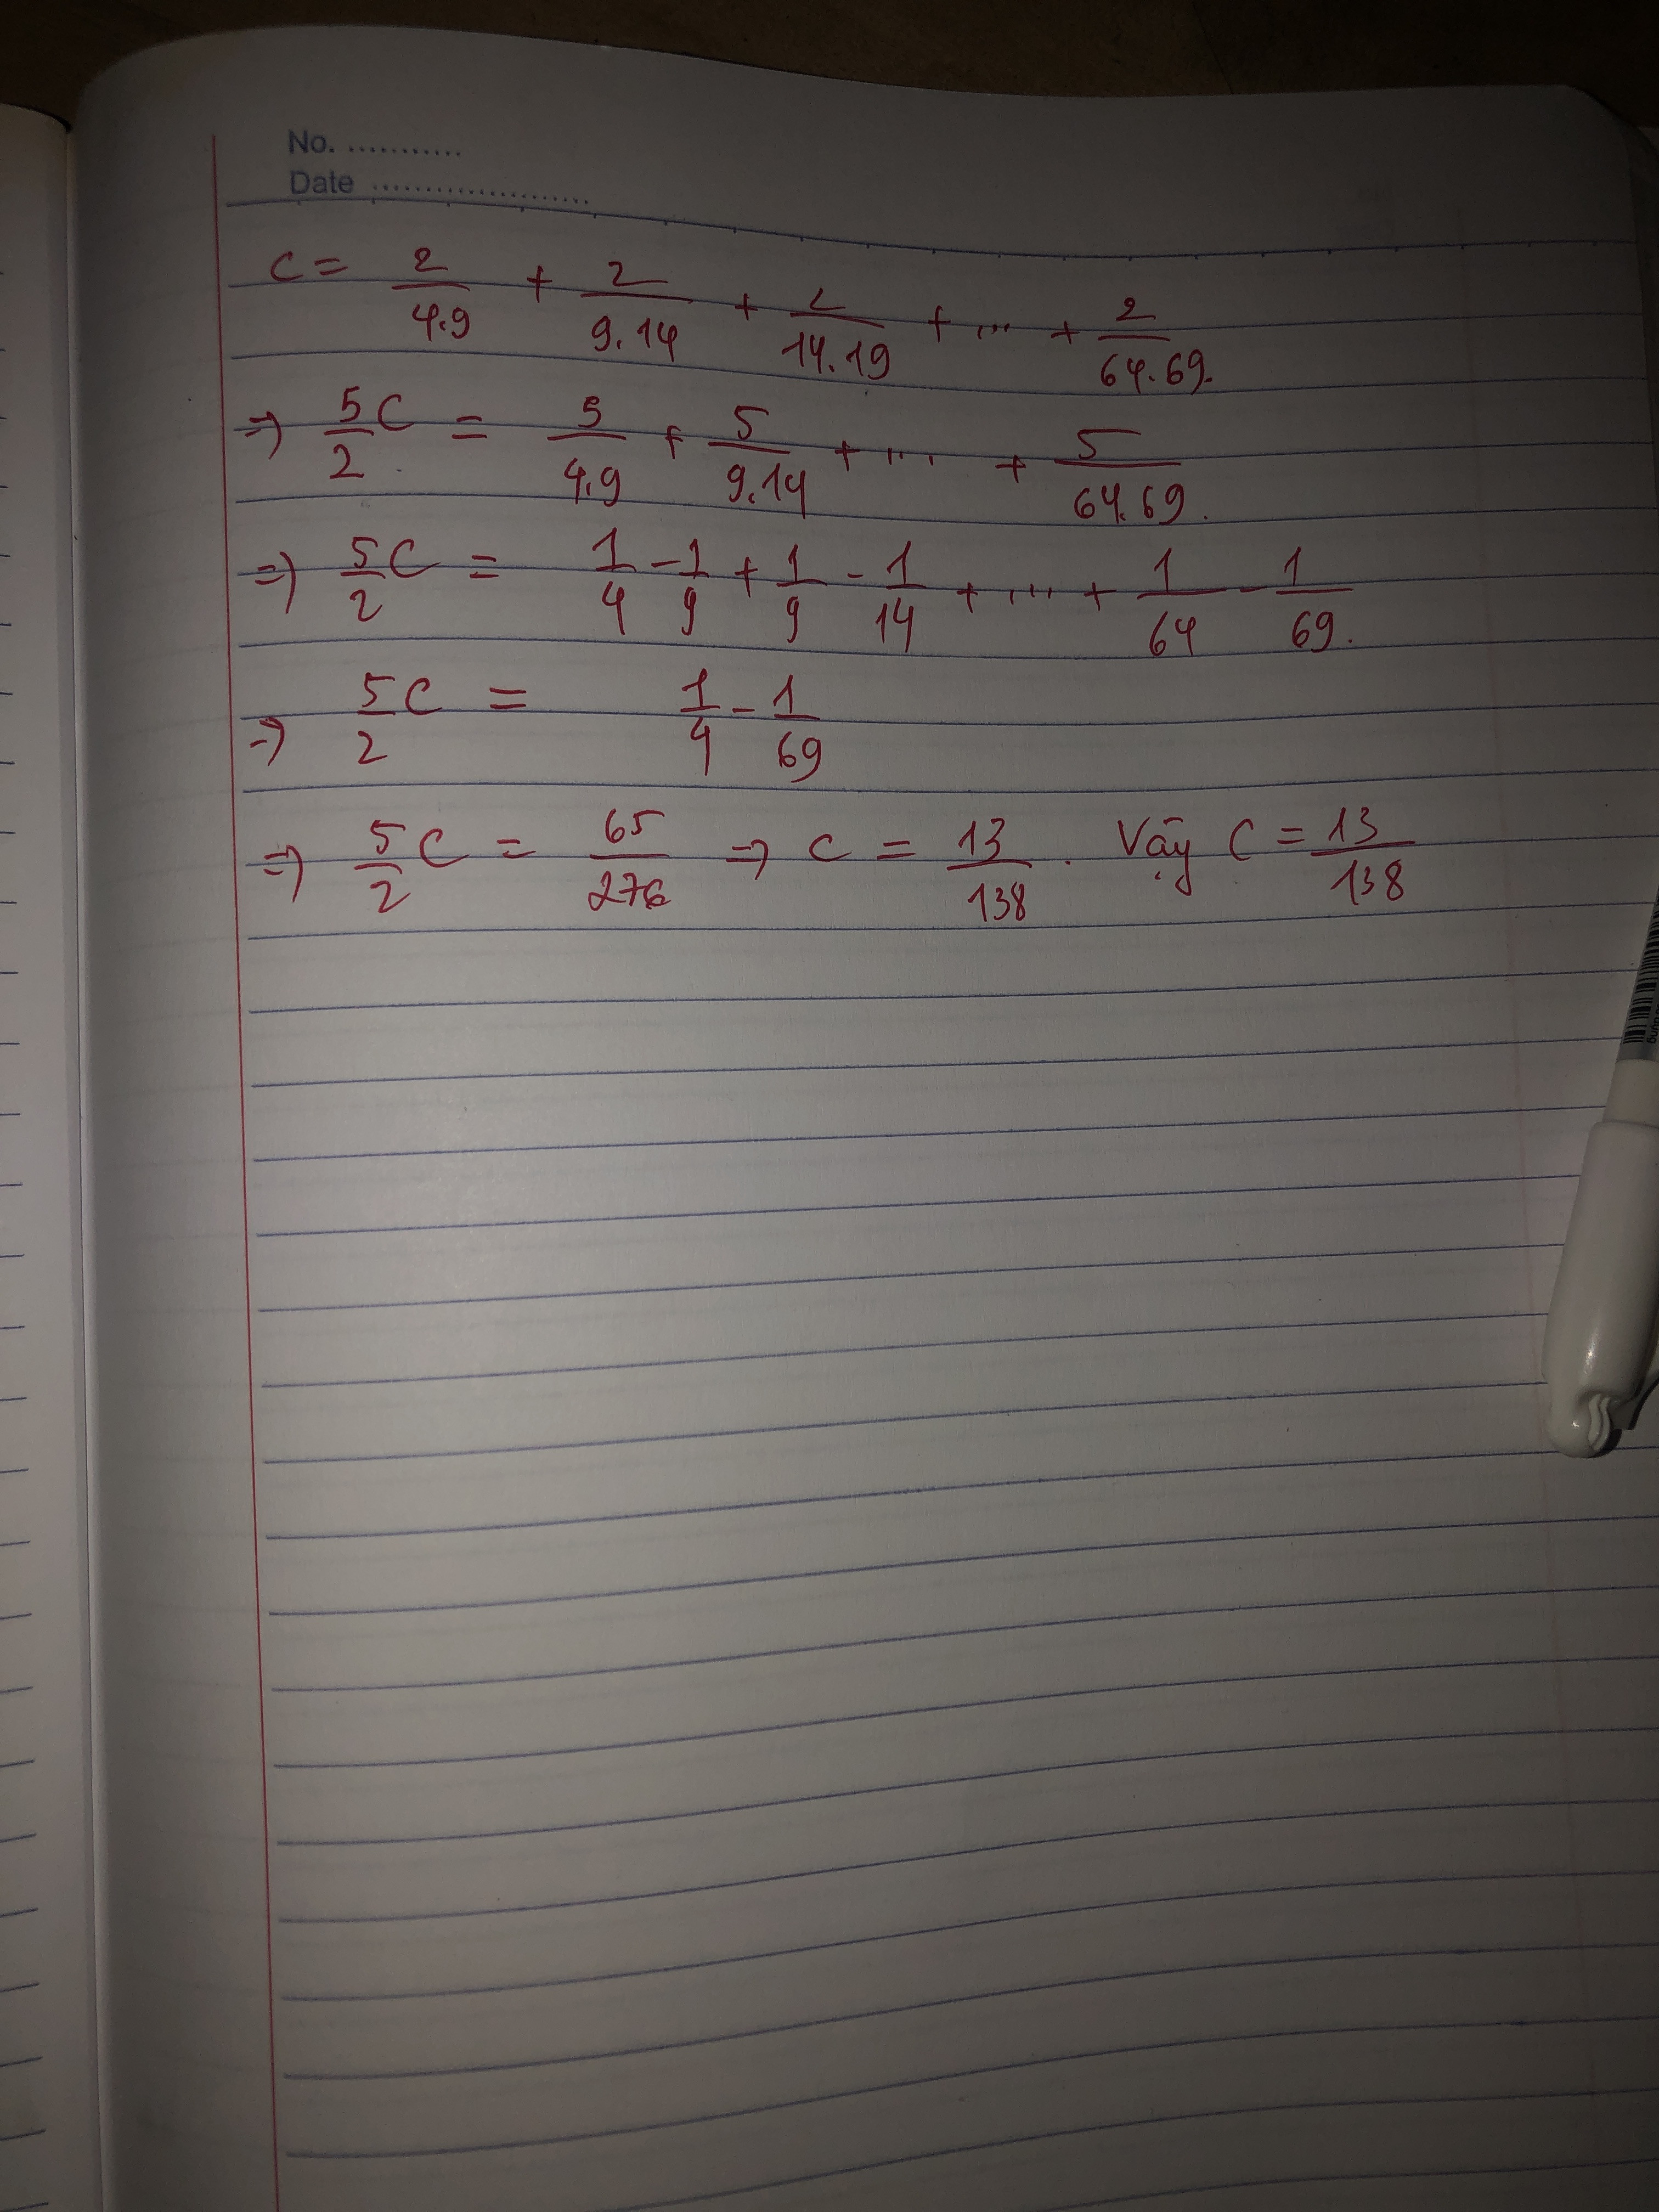 No. ...........
Date .....................
C = 2/4.9 + 2/9.14 + 2/14.19 + ... + 2/64.69.
=> 5/2 C = 5/4.9 + 5/9.14 + ... + 5/64.69.
=> 5/2 C = 1/4 - 1/9 + 1/9 - 1/14 + ... + 1/64 - 1/69.
=> 5/2 C = 1/4 - 1/69
=> 5/2 C = 65/276 => C = 13/138. Vậy C = 13/138